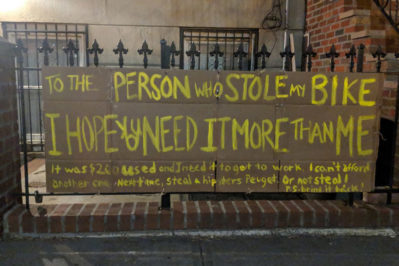 TO THE PERSON WHO STOLE MY BIKE
I HOPE YA NEED IT MORE THAN ME
It was $200 used and I need it to get to work. I can't afford
another one. Next time, steal a hipsters Peuget. Or not steal!
P.S. bring it back!